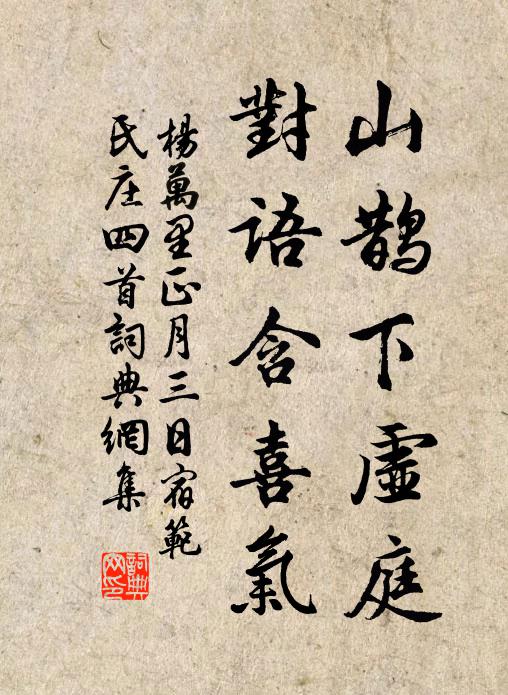 山鵲下虛庭
對語含喜氣
楊萬里正月三日宿範
氏庄四首詞典網集
詞典
网印